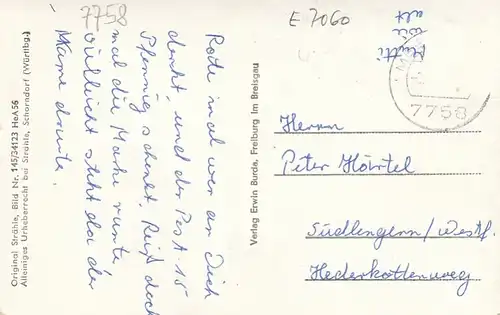 7758
E 7060
Mutti
wir
alt
7758
Rate mal wer an Dich
denkt, und der Post 15
Pfennig schenkt. Reiß doch
mal die Marke runter
vielleicht steht da der
Name drunter.
Herrn
Peter Hörtel
Südlengern/Westf.
Hederkottenweg
Verlag Erwin Burda, Freiburg im Breisgau
Original Strähle, Bild Nr. 145/34123 HaA56
Alleiniges Urheberrecht bei Strähle, Schorndorf (Württbg.)